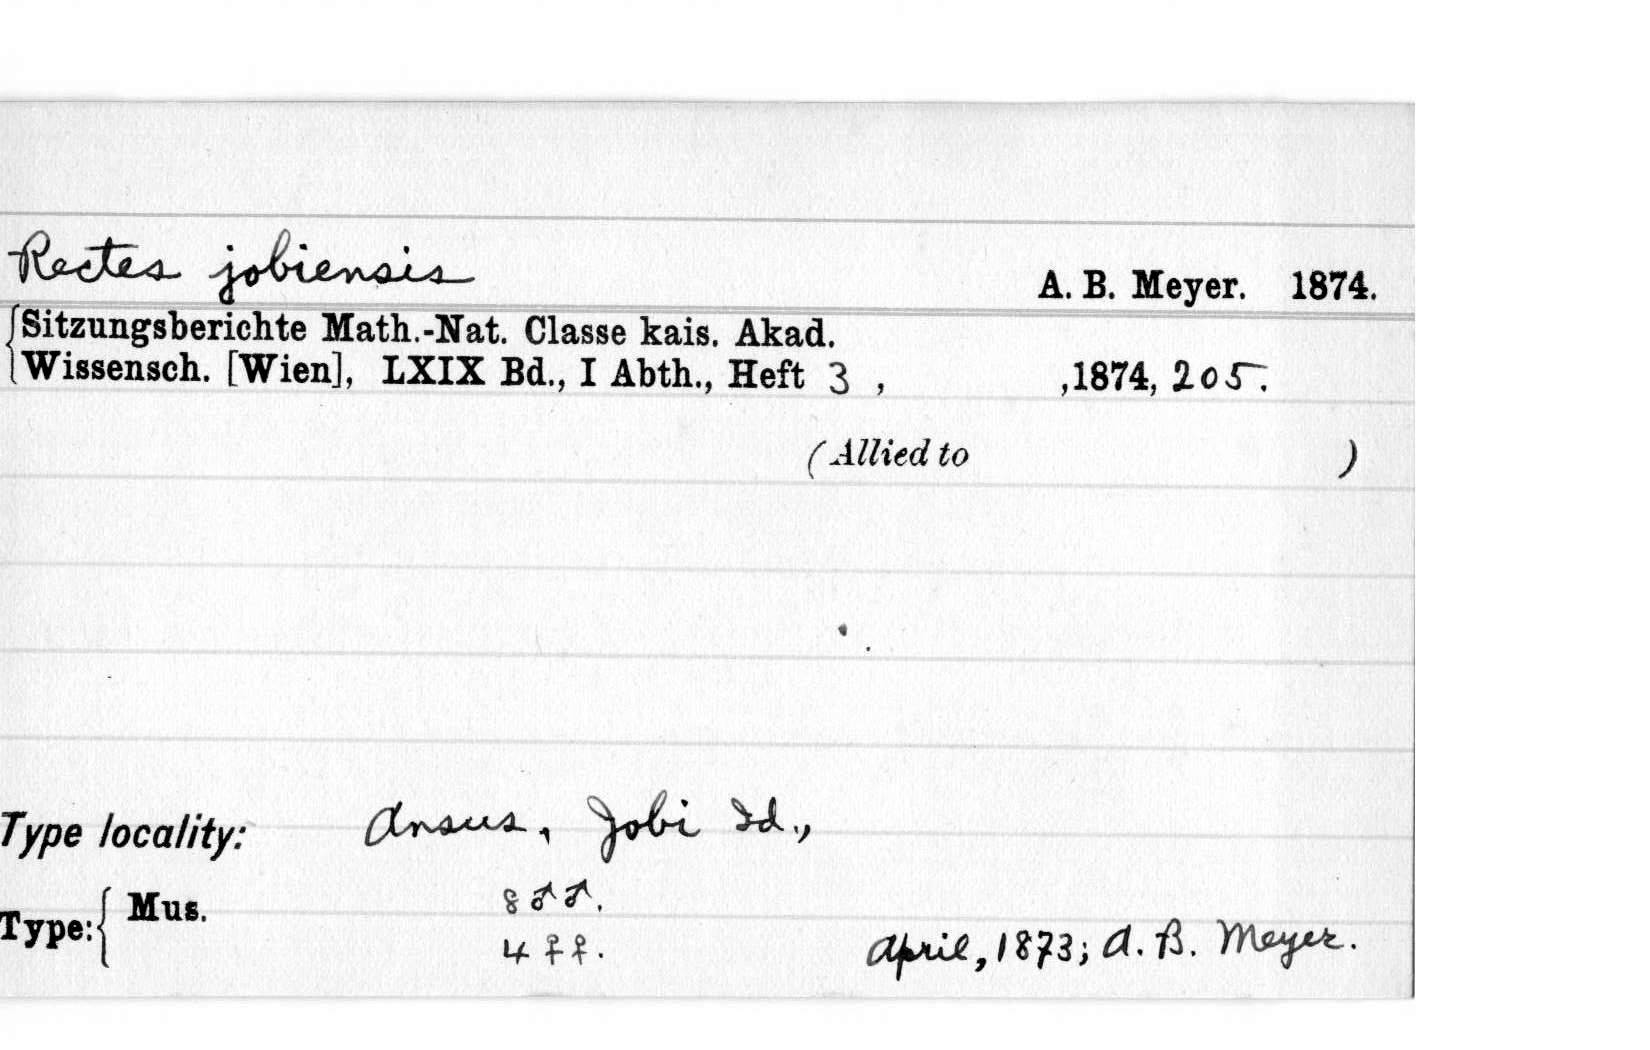 Rectes jobiensis A. B. Meyer. 1874.
Sitzungsberichte Math.-Nat. Classe kais. Akad.
Wissensch. [Wien], LXIX Bd., I Abth., Heft 3 , ,1874, 205.
(Allied to )
Type locality: Ansus, Jobi Id.,
Type: Mus. 8 ♂♂.
4 ♀♀. April, 1873; A. B. Meyer.